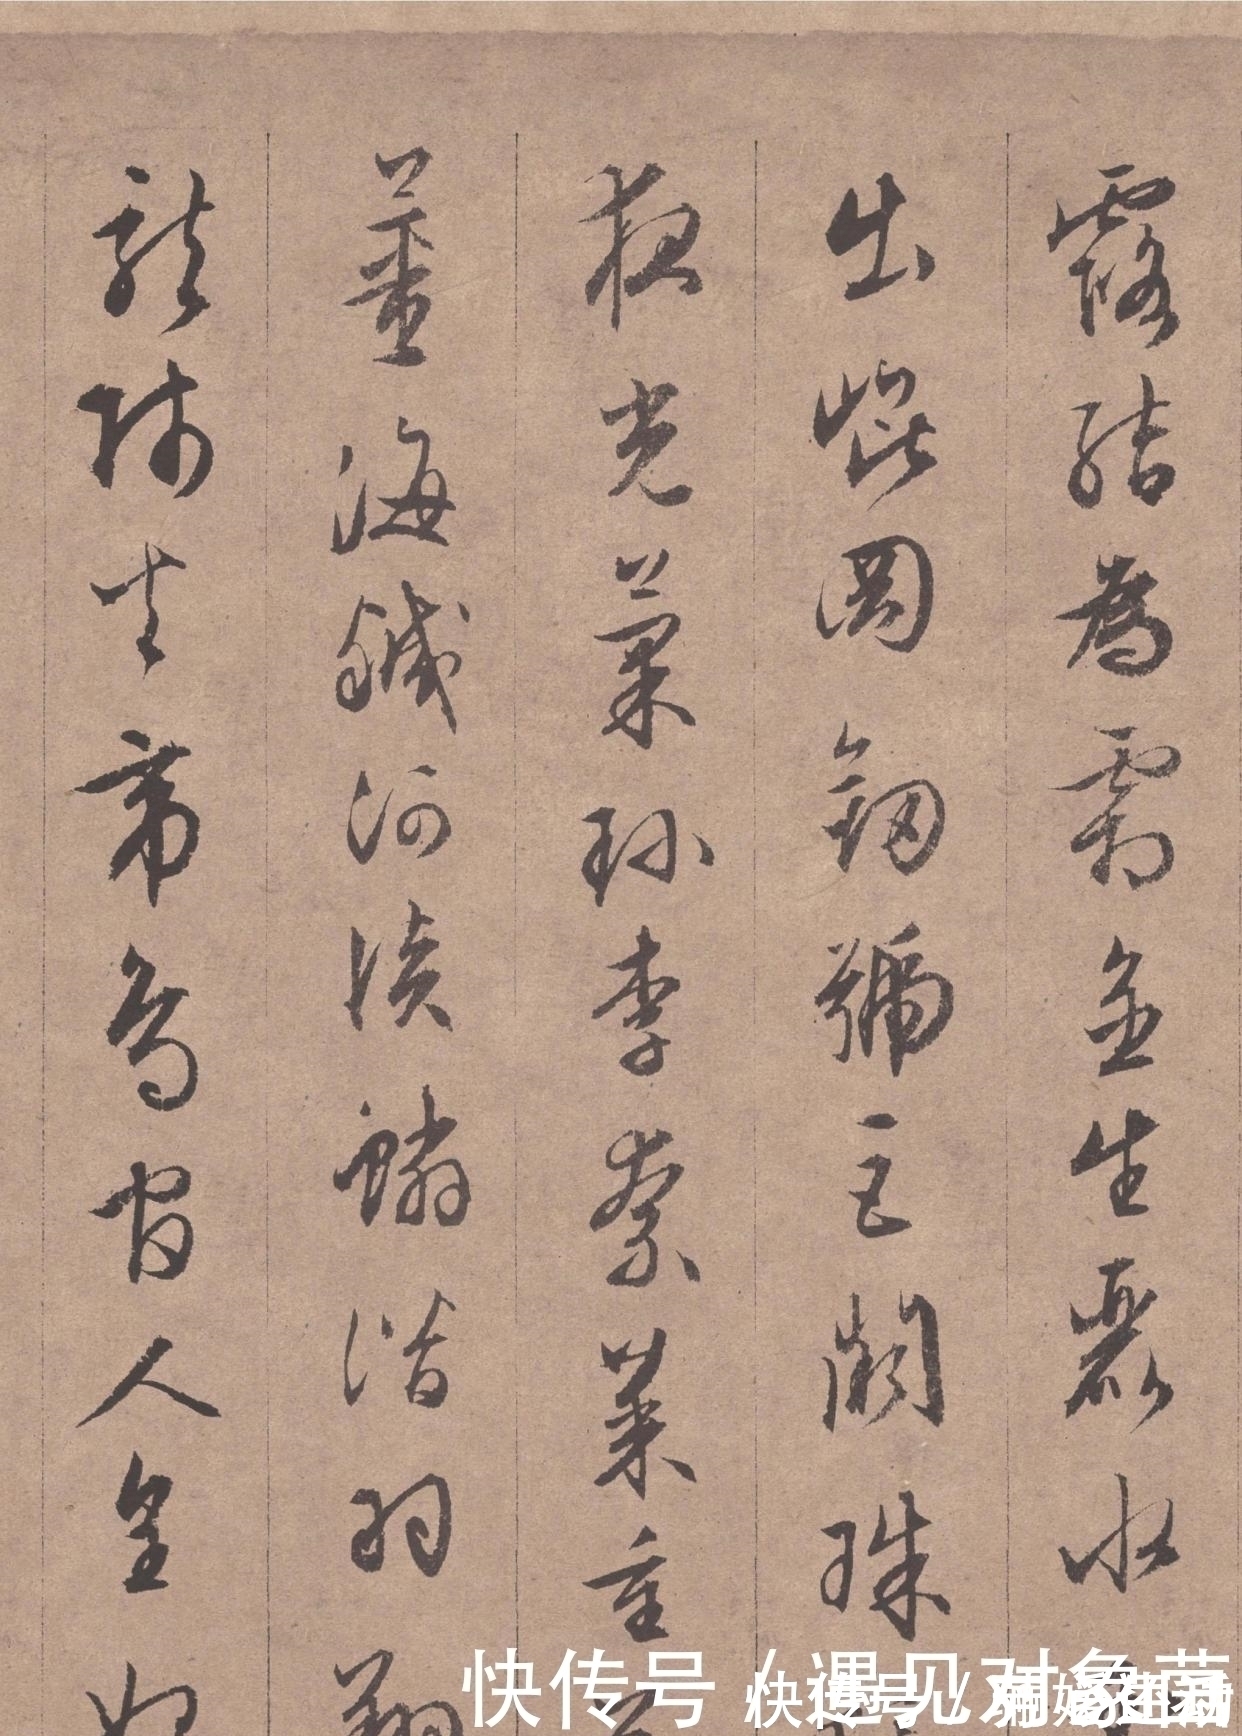 露結為霜金生麗水
出崐岡劒號巨闕珠
夜光菓珎李柰菜重
薑海鹹河淡鱗潛羽翔
龍師火帝鳥官人皇始
快传号/遇见对象荫
快传号/